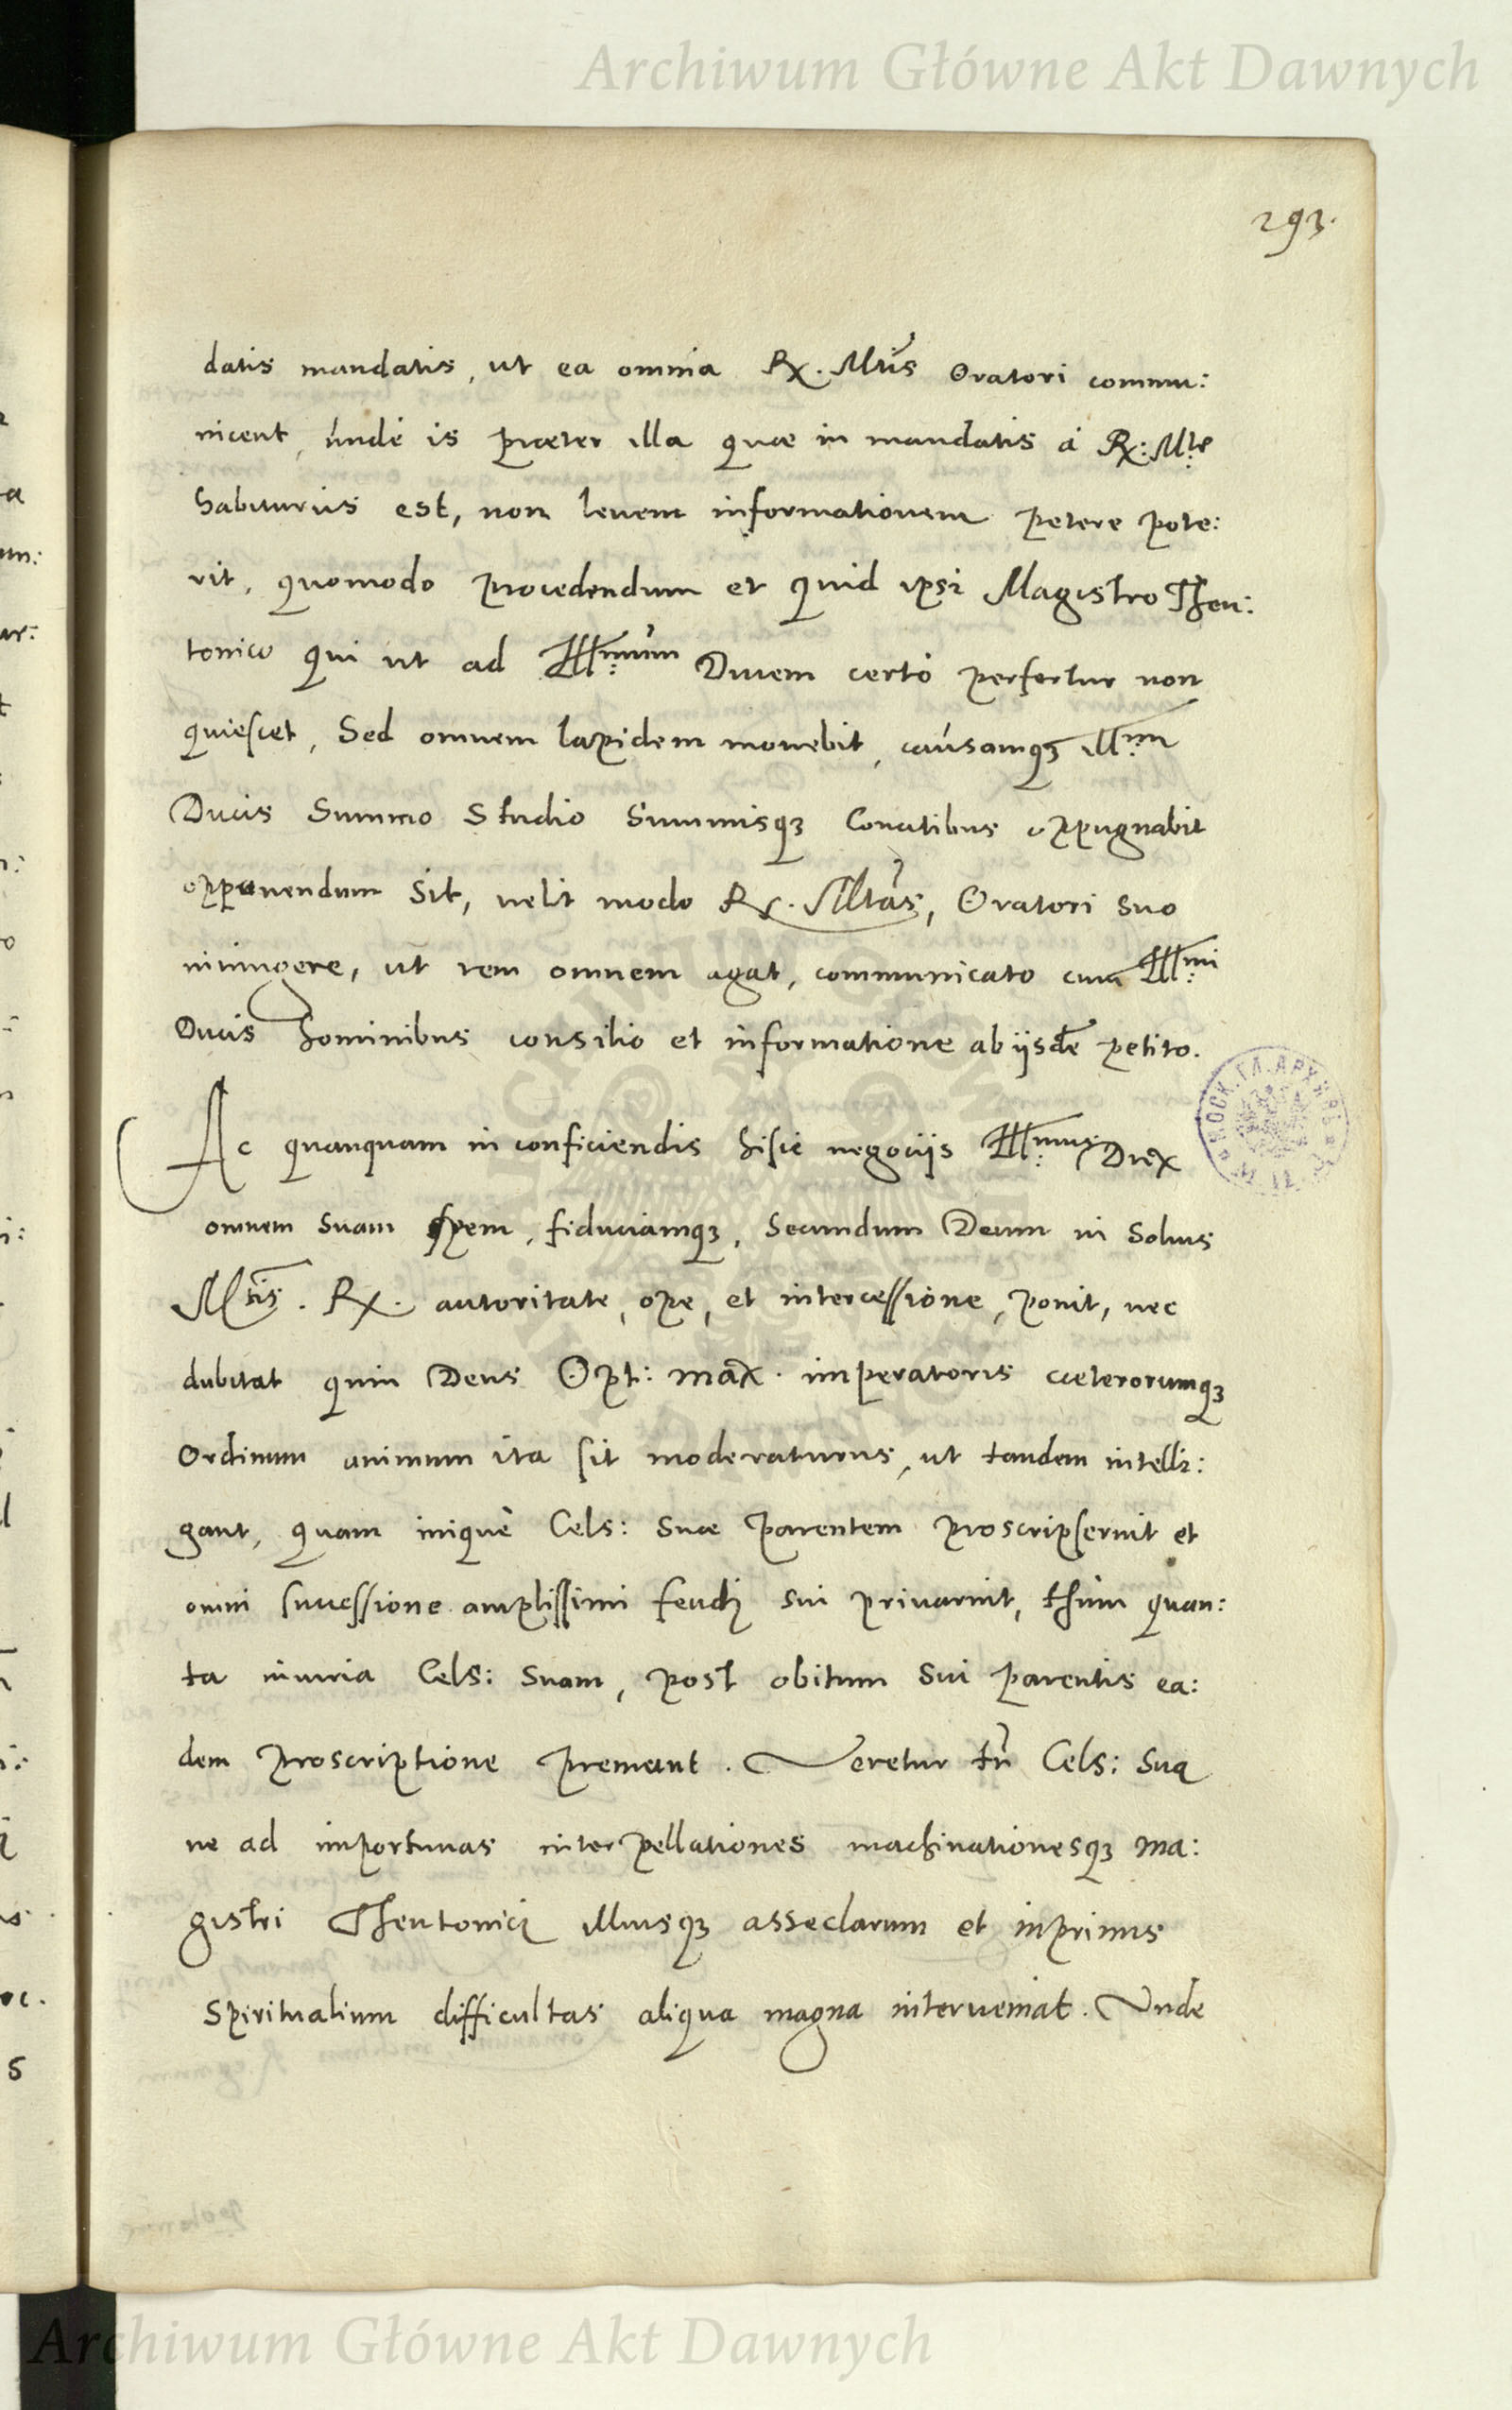 Archiwum Główne Akt Dawnych
293.
datis mandatis, ut ea omnia Rx. Mtis Oratori commu:
nicent, unde is præter illa quæ in mandatis à Rx: Mte
habiturus est, non levem informationem petere pote:
rit, quomodo procedendum et quid ipsi Magistro Theu:
tonico qui ut ad Illmum Ducem certo perfertur non
quiescet, Sed omnem lapidem movebit, causamqz Illmi
Ducis Summo Studio Summisqz Conatibus oppugnabit
opponendum Sit, velit modo Rx. Mtas, Oratori suo
iniungere, ut rem omnem agat, communicato cum Illmi
Ducis hominibus consilio et informatione ab iisdē petito.
Ac quanquam in conficiendis hisce negociis Illmus Dux
omnem Suam Spem, fiduciamqz, Secundum Deum in Solius
Mtis. Rx. autoritate, ope, et intercessione, ponit, nec
dubitat quin Deus Opt: max. imperatoris cæterorumqz
Ordinum animum ita sit moderaturus, ut tandem intelli:
gant, quam iniquè Cels: Suæ parentem proscripserint et
omni successione amplissimi feudi sui privarint, tum quan:
ta iniuria Cels: Suam, post obitum Sui parentis ea:
dem proscriptione premant. Veretur tn̄ Cels: Sua
ne ad importunas interpellationes machinationesqz ma:
gistri Theutonici illiusqz asseclarum et inprimis
Spiritualium difficultas aliqua magna interveniat. Unde
Archiwum Główne Akt Dawnych